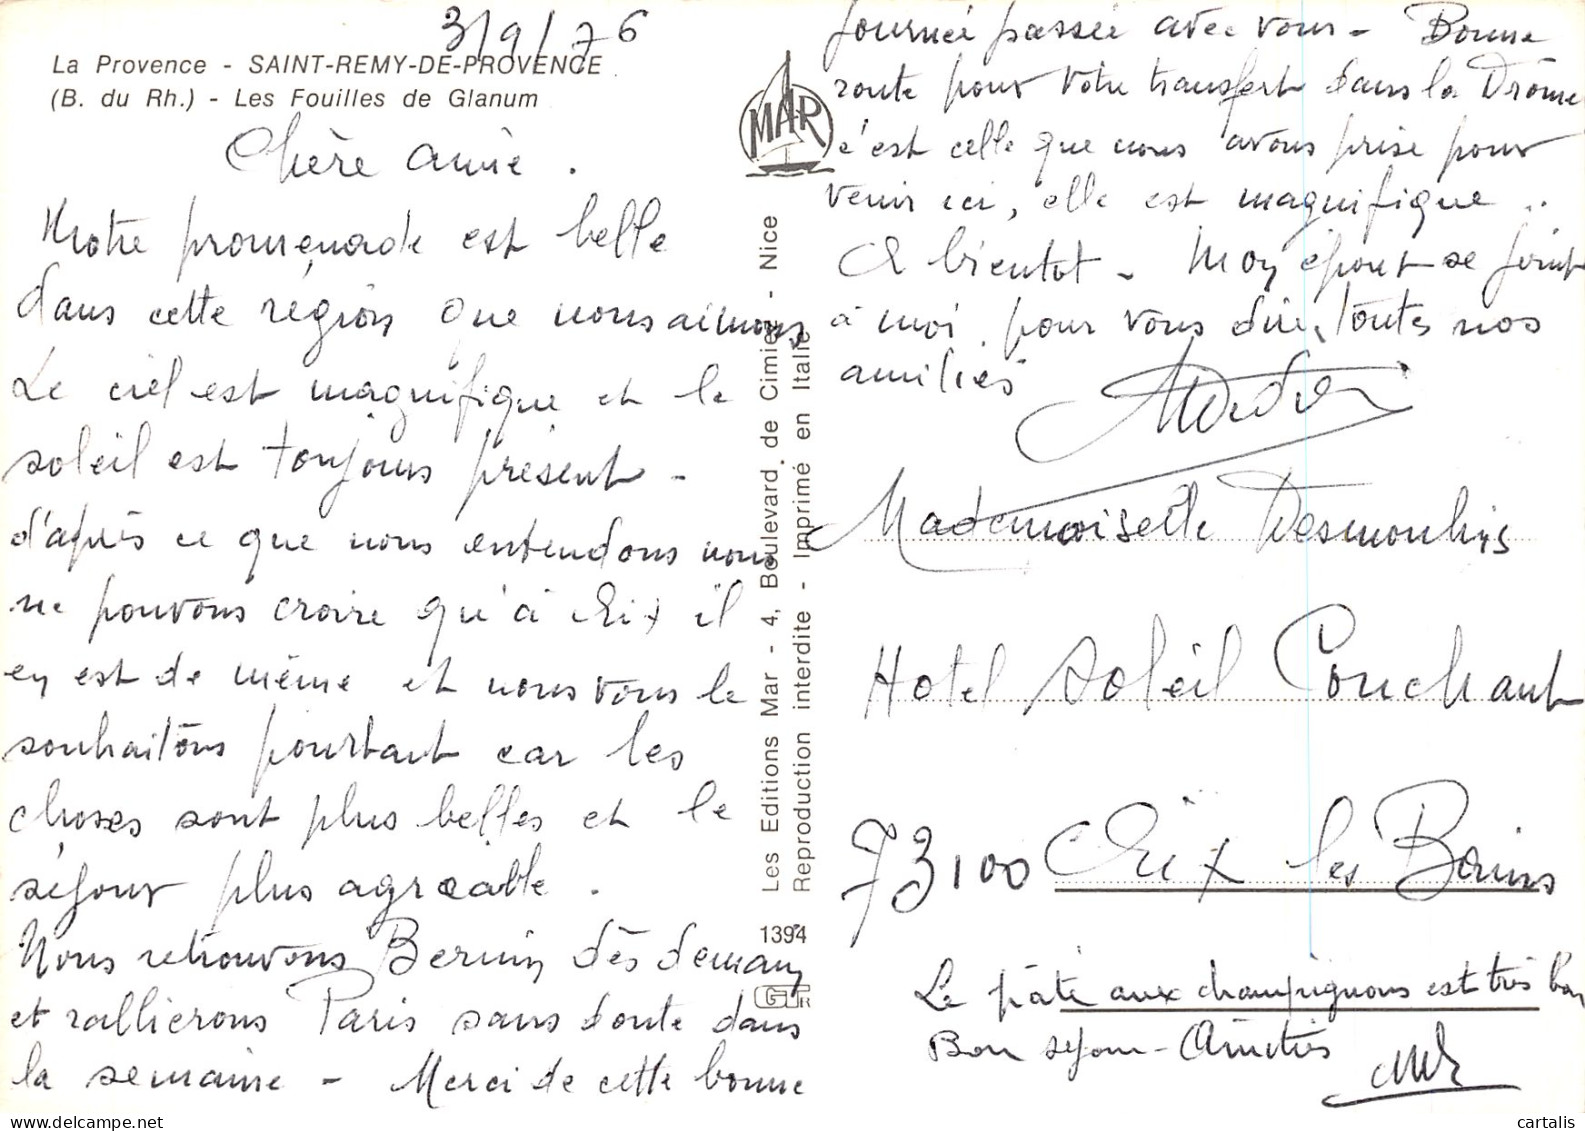 3/9/76
La Provence - SAINT-REMY-DE-PROVENCE
(B. du Rh.) - Les Fouilles de Glanum
Chère amie.
Notre promenade est belle
dans cette région que nous aimons
Le ciel est magnifique et le
soleil est toujours présent -
d'après ce que nous entendons nous
ne pouvons croire qu'à Aix il
en est de même et nous vous le
souhaitons pourtant car les
choses sont plus belles et le
séjour plus agréable.
Nous retrouvons Bernin dès demain
et rallierons Paris sans doute dans
la semaine - Merci de cette bonne
journée passée avec vous - Bonne
route pour votre transfert dans la Drôme
c'est celle que nous avons prise pour
venir ici, elle est magnifique..
A bientot - Mon époux se joint
à moi pour vous dire toutes nos
amitiés
MAR
Les Editions Mar - 4, Boulevard de Cimiez - Nice
Reproduction interdite - Imprimé en Italie
1394
Mademoiselle Desmoulins
Hotel Soleil Couchant
73100 Aix les Bains
Le pâté aux champignons est très bon
Bon séjour - Amitiés
cartalis